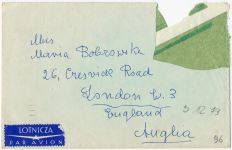 Mrs
Maria Bobrowska
26, Creswick Road
London W. 3
England
Anglia
LOTNICZA
PAR AVION
5 12 73
96